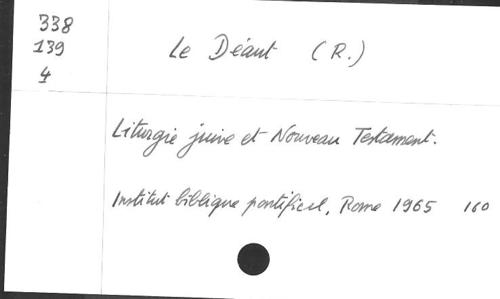 338
139
4
Le Déaut (R.)
Liturgie juive et Nouveau Testament.
Institut biblique pontifical, Rome 1965 160